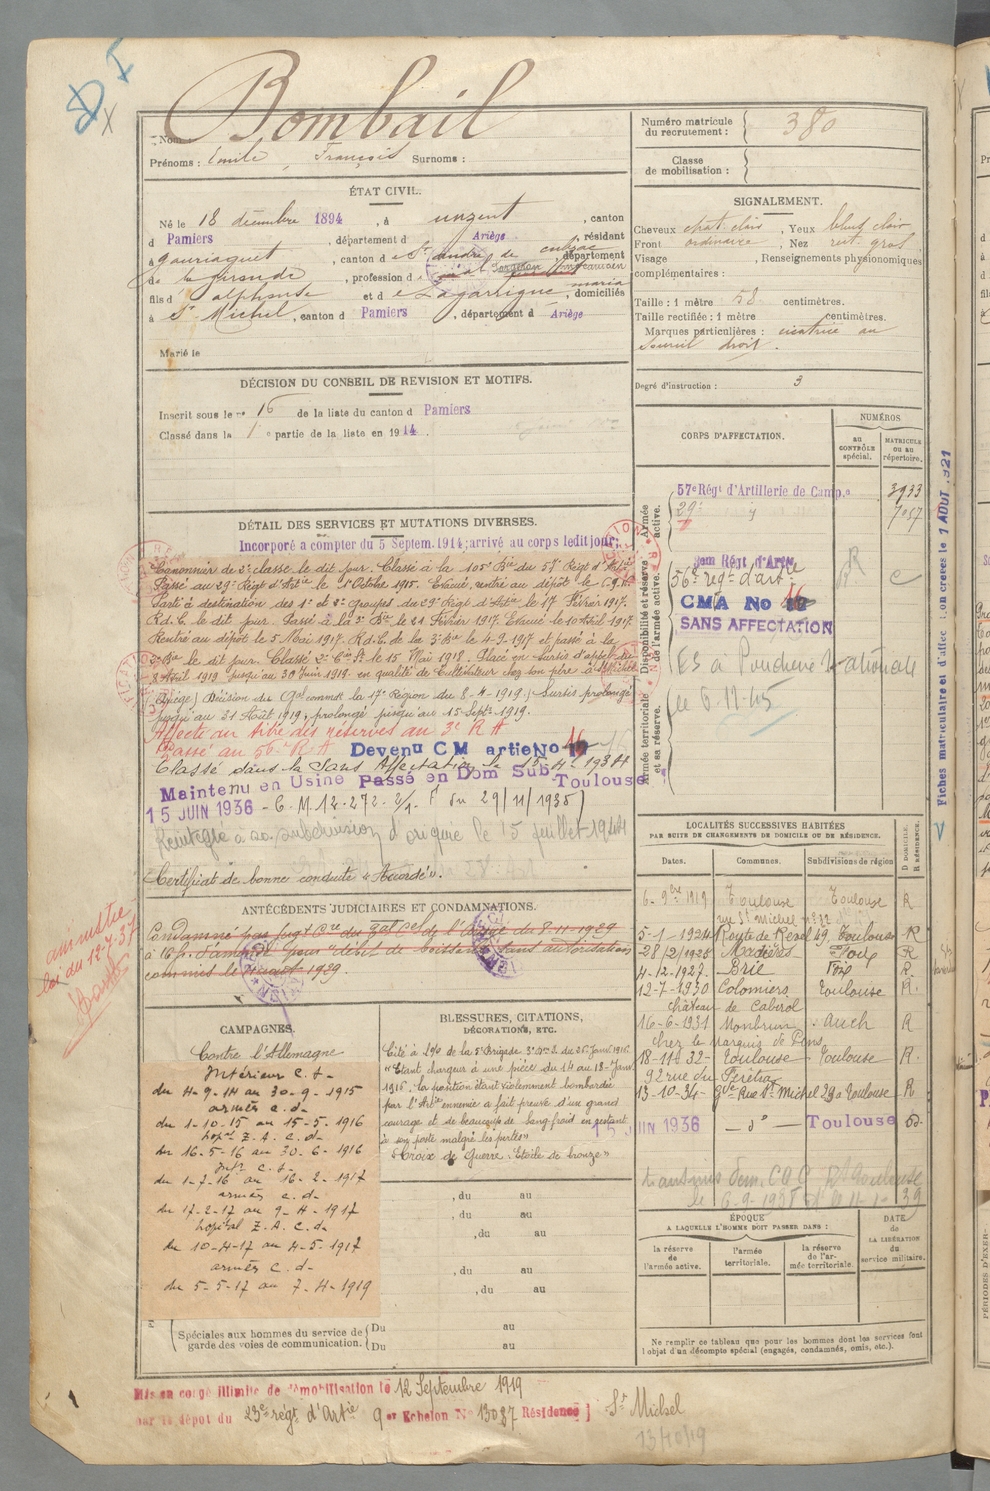 Bombail
Nom
Prénoms : Emile, François Surnoms :
Numéro matricule du recrutement : 380
Classe de mobilisation :
ÉTAT CIVIL.
Né le 18 décembre 1894, à unzent, canton
d Pamiers, département d Ariège, résidant
à gauriaguet, canton d e St andré de cubzac, département
de la gironde, profession d
fils d alphonse et d e Lagarrigue maria, domiciliés
à St Michel, canton d Pamiers, département d Ariège
Marié le
SIGNALEMENT.
Cheveux chat. clair, Yeux bleus clair
Front ordinaire, Nez rect. gros,
Visage , Renseignements physionomiques
complémentaires :
Taille : 1 mètre 58 centimètres.
Taille rectifiée : 1 mètre centimètres.
Marques particulières : cicatrice au
sourcil droit.
Degré d'instruction : 3
DÉCISION DU CONSEIL DE REVISION ET MOTIFS.
Inscrit sous le no 16 de la liste du canton d Pamiers
Classé dans la 1 e partie de la liste en 1914.
CORPS D'AFFECTATION.
NUMÉROS
AU CONTRÔLE spécial.
MATRICULE OU AU répertoire.
Armée active.
57e Régt d'Artillerie de Camp. 3933
29e 7057
Disponibilité et réserve de l'armée active.
3em Régt d'Artie
56e regt d'artie
CMA No 16
SANS AFFECTATION
Armée territoriale et sa réserve.
ES à Poudrerie Nationale
le 6.11.45
Fiches matriculaire et d'affectation créées le 1 AOUT 1921
DÉTAIL DES SERVICES ET MUTATIONS DIVERSES.
Incorporé a compter du 5 Septem. 1914; arrivé au corps ledit jour;
Canonnier de 2e classe le dit jour. Classé à la 105e Bie du 57e Régt d'Artie
Passé au 29e Régt d'Artie le 1er Octobre 1915. Evacué, rentré au dépôt le
Parti à destination des 1er et 2e groupes du 29e Régt d'Artie le 17 Février 1917.
R.d.C. le dit jour. Passé à la 3e Bie le 21 Février 1917. Evacué le 10 Avril 1917.
Rentré au dépôt le 5 Mai 1917. R.d.C. de la 3e Bie le 4-9-1917 et passé à la
2e Bie le dit jour. Classé 2e Cin St le 15 Mai 1918. Placé en Sursis d'appel du
8 Avril 1919 jusqu'au 30 Juin 1919 en qualité de Cultivateur chez son père à St Michel
(Ariège) Décision du Gal commt la 17e Région du 8-4-1919. Sursis prolongé
jusqu'au 31 Août 1919, prolongé jusqu'au 15 Septe 1919.
Affecté au titre des réserves au 3e R A
Passé au 56e R.A Devenu CM artie No 16
Classé dans la Sans Affectation le 15-4-1934
Maintenu en Usine Passé en Dom Sub. Toulouse
15 JUIN 1936 - C.M. 12.272. 2/1. F du 29/11/1935)
Réintégré à sa subdivision d'origine le 15 juillet 1944
Certificat de bonne conduite "Accordé".
ANTÉCÉDENTS JUDICIAIRES ET CONDAMNATIONS.
Condamné par jugt Cre du Bal Cel de l'Ariège du 8-11-1929
à 16 f. d'amende pour "débit de boissons sans autorisation
commis le 11 août 1929.
amnistie
loi du 12-7-37
CAMPAGNES.
Contre l'Allemagne
Intérieur C.S-
du 4-9-14 au 30-9-1915
armées c.d-
du 1-10-15 au 15-5-1916
hopl Z.A. C.d-
du 16-5-16 au 30-6-1916
Intr C.S-
du 1-7-16 au 16-2-1917
armées c.d-
du 17-2-17 au 9-4-1917
hopital Z.A. C.d-
du 10-4-17 au 4-5-1917
armées C.d-
du 5-5-17 au 7-4-1919
Spéciales aux hommes du service de garde des voies de communication.
Du au
Du au
BLESSURES, CITATIONS, DÉCORATIONS, ETC.
Cité à l'O. de la 5e Brigade
"Etant chargeur à une pièce, du 14 au 18 Janv
1916, la position étant violemment bombardée
par l'Artie ennemie a fait preuve d'un grand
courage et de beaucoup de sang-froid en restant
à son poste malgré les pertes"
"Croix de Guerre. Etoile de bronze"
, du au
, du au
, du au
, du au
, du au
LOCALITÉS SUCCESSIVES HABITÉES
PAR SUITE DE CHANGEMENTS DE DOMICILE OU DE RÉSIDENCE.
Dates. Communes. Subdivisions de région D DOMICILE. R RÉSIDENCE.
6-9bre 1919 Toulouse Toulouse R
rue St michel no 22
5-1-1924 Route de Revel 49. Toulouse R
28/2/1928 Madières Foix R
4-12-1927 Brie Foix R.
12-7-1930 Colomiers Toulouse R.
château de Cabirol
16-6-1931 Monbrun Auch R
chez le marquis de Pons
18-11-32- Toulouse Toulouse R.
92 rue du Férétra
13-10-34- Gde Rue St Michel 29a Toulouse R
15 JUIN 1936 — d° — Toulouse D.
ÉPOQUE
A LAQUELLE L'HOMME DOIT PASSER DANS :
la réserve de l'armée active.
l'armée territoriale.
la réserve de l'armée territoriale
DATE de LA LIBÉRATION du service militaire.
Ne remplir ce tableau que pour les hommes dont les services font l'objet d'un décompte spécial (engagés, condamnés, omis, etc.).
Mis en congé illimité de démobilisation le 12 Septembre 1919
par le dépôt du 23e régt d'Artie 9 er Echelon No 13087 Résidence] St Michel
13/10/19